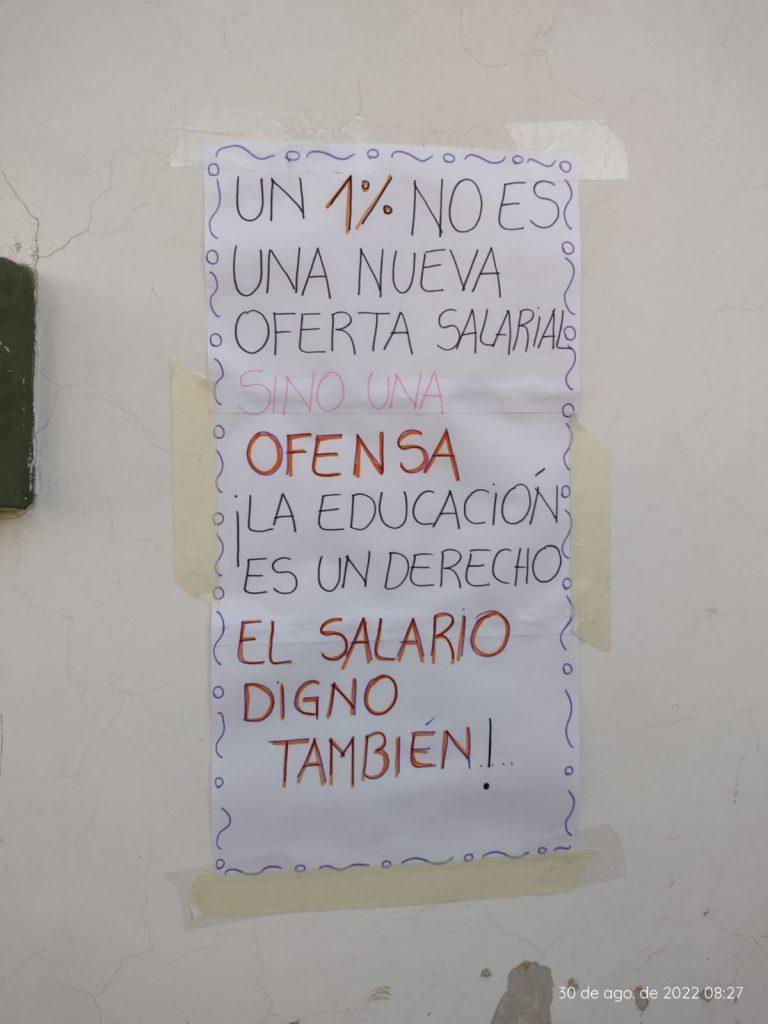 UN 1% NO ES
UNA NUEVA
OFERTA SALARIAL
SINO UNA
OFENSA
¡LA EDUCACIÓN
ES UN DERECHO
EL SALARIO
DIGNO
TAMBIÉN!..
30 de ago. de 2022 08:27